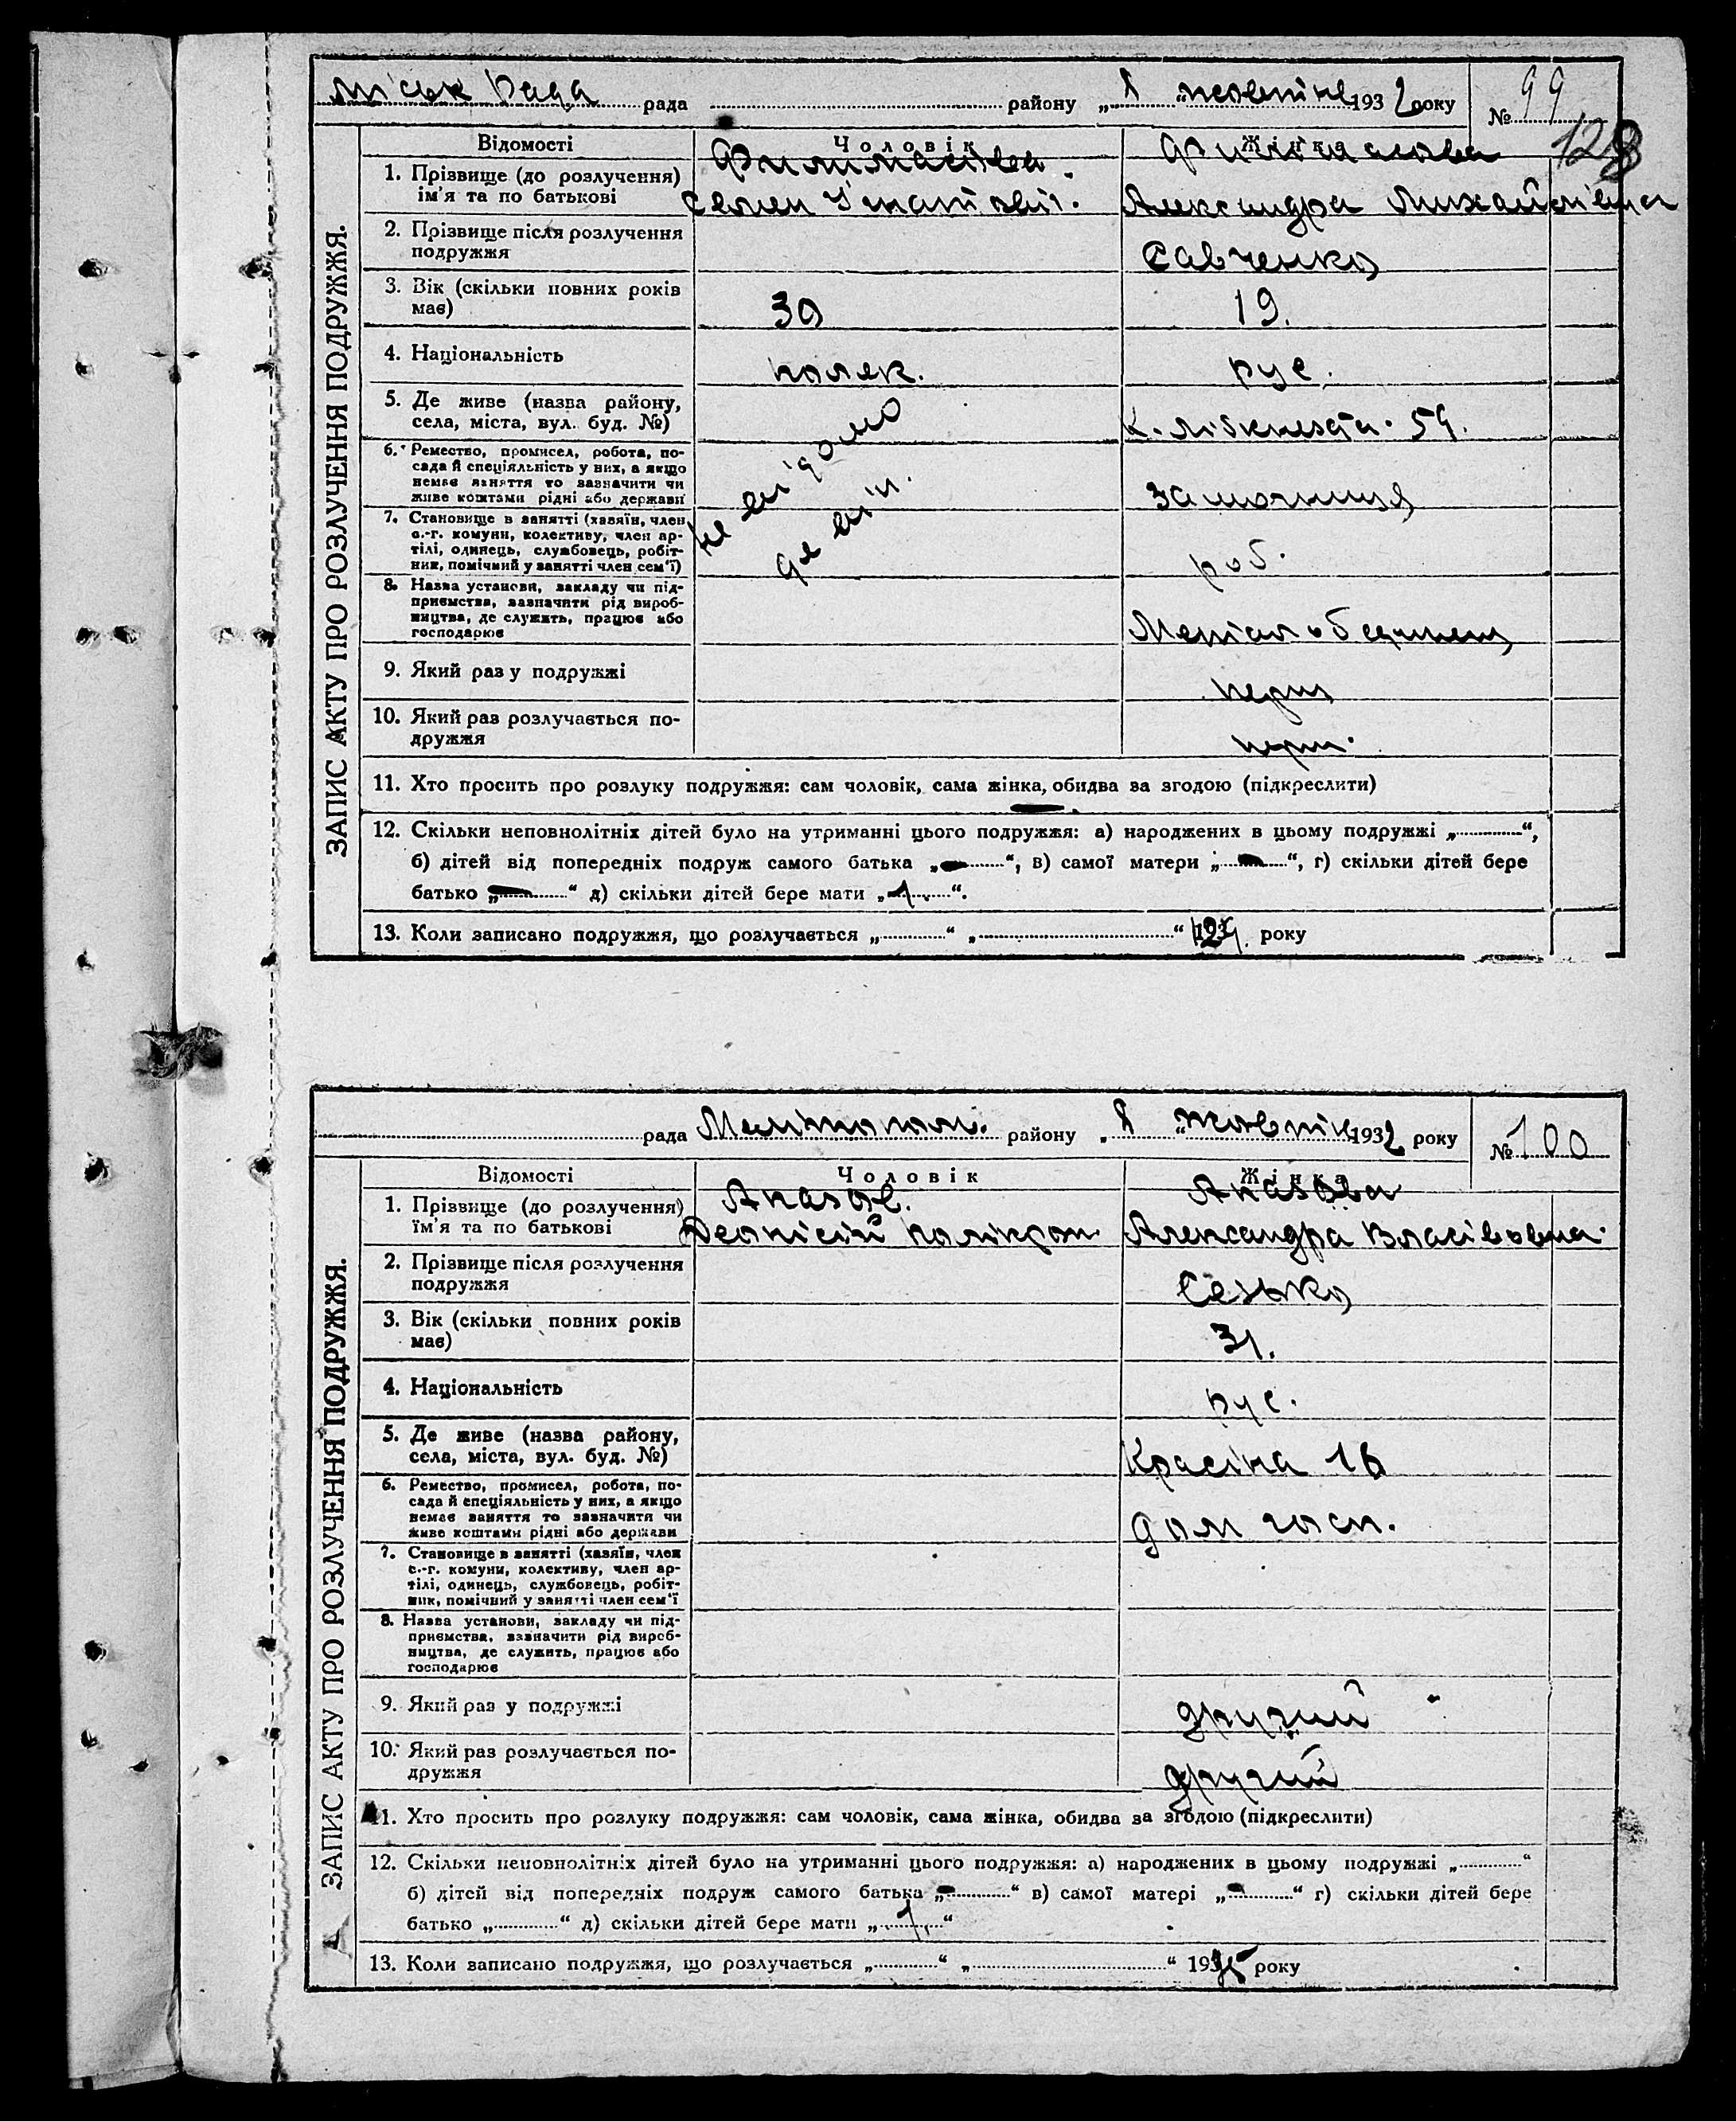 міськ Рада рада району „8 “жовтня 1932 року № 99
128
ЗАПИС АКТУ ПРО РОЗЛУЧЕННЯ ПОДРУЖЖЯ.
Відомості Чоловік Жінка
1. Прізвище (до розлучення)
ім'я та по батькові
Семен Александра Михайлівна
2. Прізвище після розлучення
подружжя Савченко
3. Вік (скільки повних років
має) 30 19.
4. Національність поляк. рус.
5. Де живе (назва району,
села, міста, вул. буд. №) К. Лібкнехта. 59.
6. Ремество, промисел, робота, по-
сада й спеціяльність у них, а якщо
немає заняття то зазначити чи
живе коштами рідні або держави
не відомо
де він.
7. Становище в занятті (хазяїн, член
с.-г. комуни, колективу, член ар-
тілі, одинець, службовець, робіт-
ник, помічний у занятті член сем'ї) роб.
8. Назва установи, закладу чи під-
приємства, зазначити рід вироб-
ництва, де служить, працює або
господарює
9. Який раз у подружжі перш
10. Який раз розлучається по-
дружжя перш.
11. Хто просить про розлуку подружжя: сам чоловік, сама жінка, обидва за згодою (підкреслити)
12. Скільки неповнолітніх дітей було на утриманні цього подружжя: а) народжених в цьому подружжі „ “,
б) дітей від попередніх подруж самого батька „ — “, в) самої матери „ — “, г) скільки дітей бере
батько „ — “ д) скільки дітей бере мати „ 1 “.
13. Коли записано подружжя, що розлучається „ “ „ “ року
рада Мелітопол. району „8 “жовтня 1932 року № 100
ЗАПИС АКТУ ПРО РОЗЛУЧЕННЯ ПОДРУЖЖЯ.
Відомості Чоловік Жінка
1. Прізвище (до розлучення)
їм'я та по батькові
Александра Власівовна.
2. Прізвище після розлучення
подружжя
3. Вік (скільки повних років
має) 31.
4. Національність рус.
5. Де живе (назва району,
села, міста, вул. буд. №) Красіна 16
6. Ремество, промисел, робота, по-
сада й спеціяльність у них, а якщо
немає заняття то зазначитя чи
живе коштами рідні або держави дом госп.
7. Становище в занятті (хазяїн, член
с.-г. комуни, колективу, член ар-
тілі, одинець, службовець, робіт-
ник, помічний у занятті член сем'ї
8. Назва установи, закладу чи під-
приємства, зазначити рід вироб-
ництва, де служить, працює або
господарює
9. Який раз у подружжі другий
10. Який раз розлучається по-
дружжя другий
11. Хто просить про розлуку подружжя: сам чоловік, сама жінка, обидва за згодою (підкреслити)
12. Скільки неповнолітніх дітей було на утриманні цього подружжя: а) народжених в цьому подружжі „ “
б) дітей від попередніх подруж самого батька „ — “ в) самої матері „ — “ г) скільки дітей бере
батько „ “ д) скільки дітей бере мати „ 1. “
13. Коли записано подружжя, що розлучається „ “ „ “ року